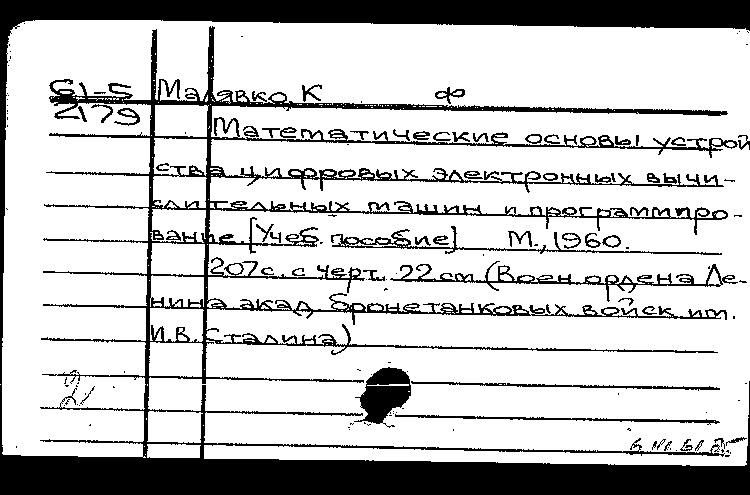 61-5 Малявко, К ф
2179
Математические основы устрой
ства цифровых электронных вычи-
слительных машин и программиро-
вание. [Учеб. пособие] М., 1960.
207с. с черт. 22 см (Воен. ордена Ле-
нина акад. бронетанковых войск им.
И.В. Сталина)
2